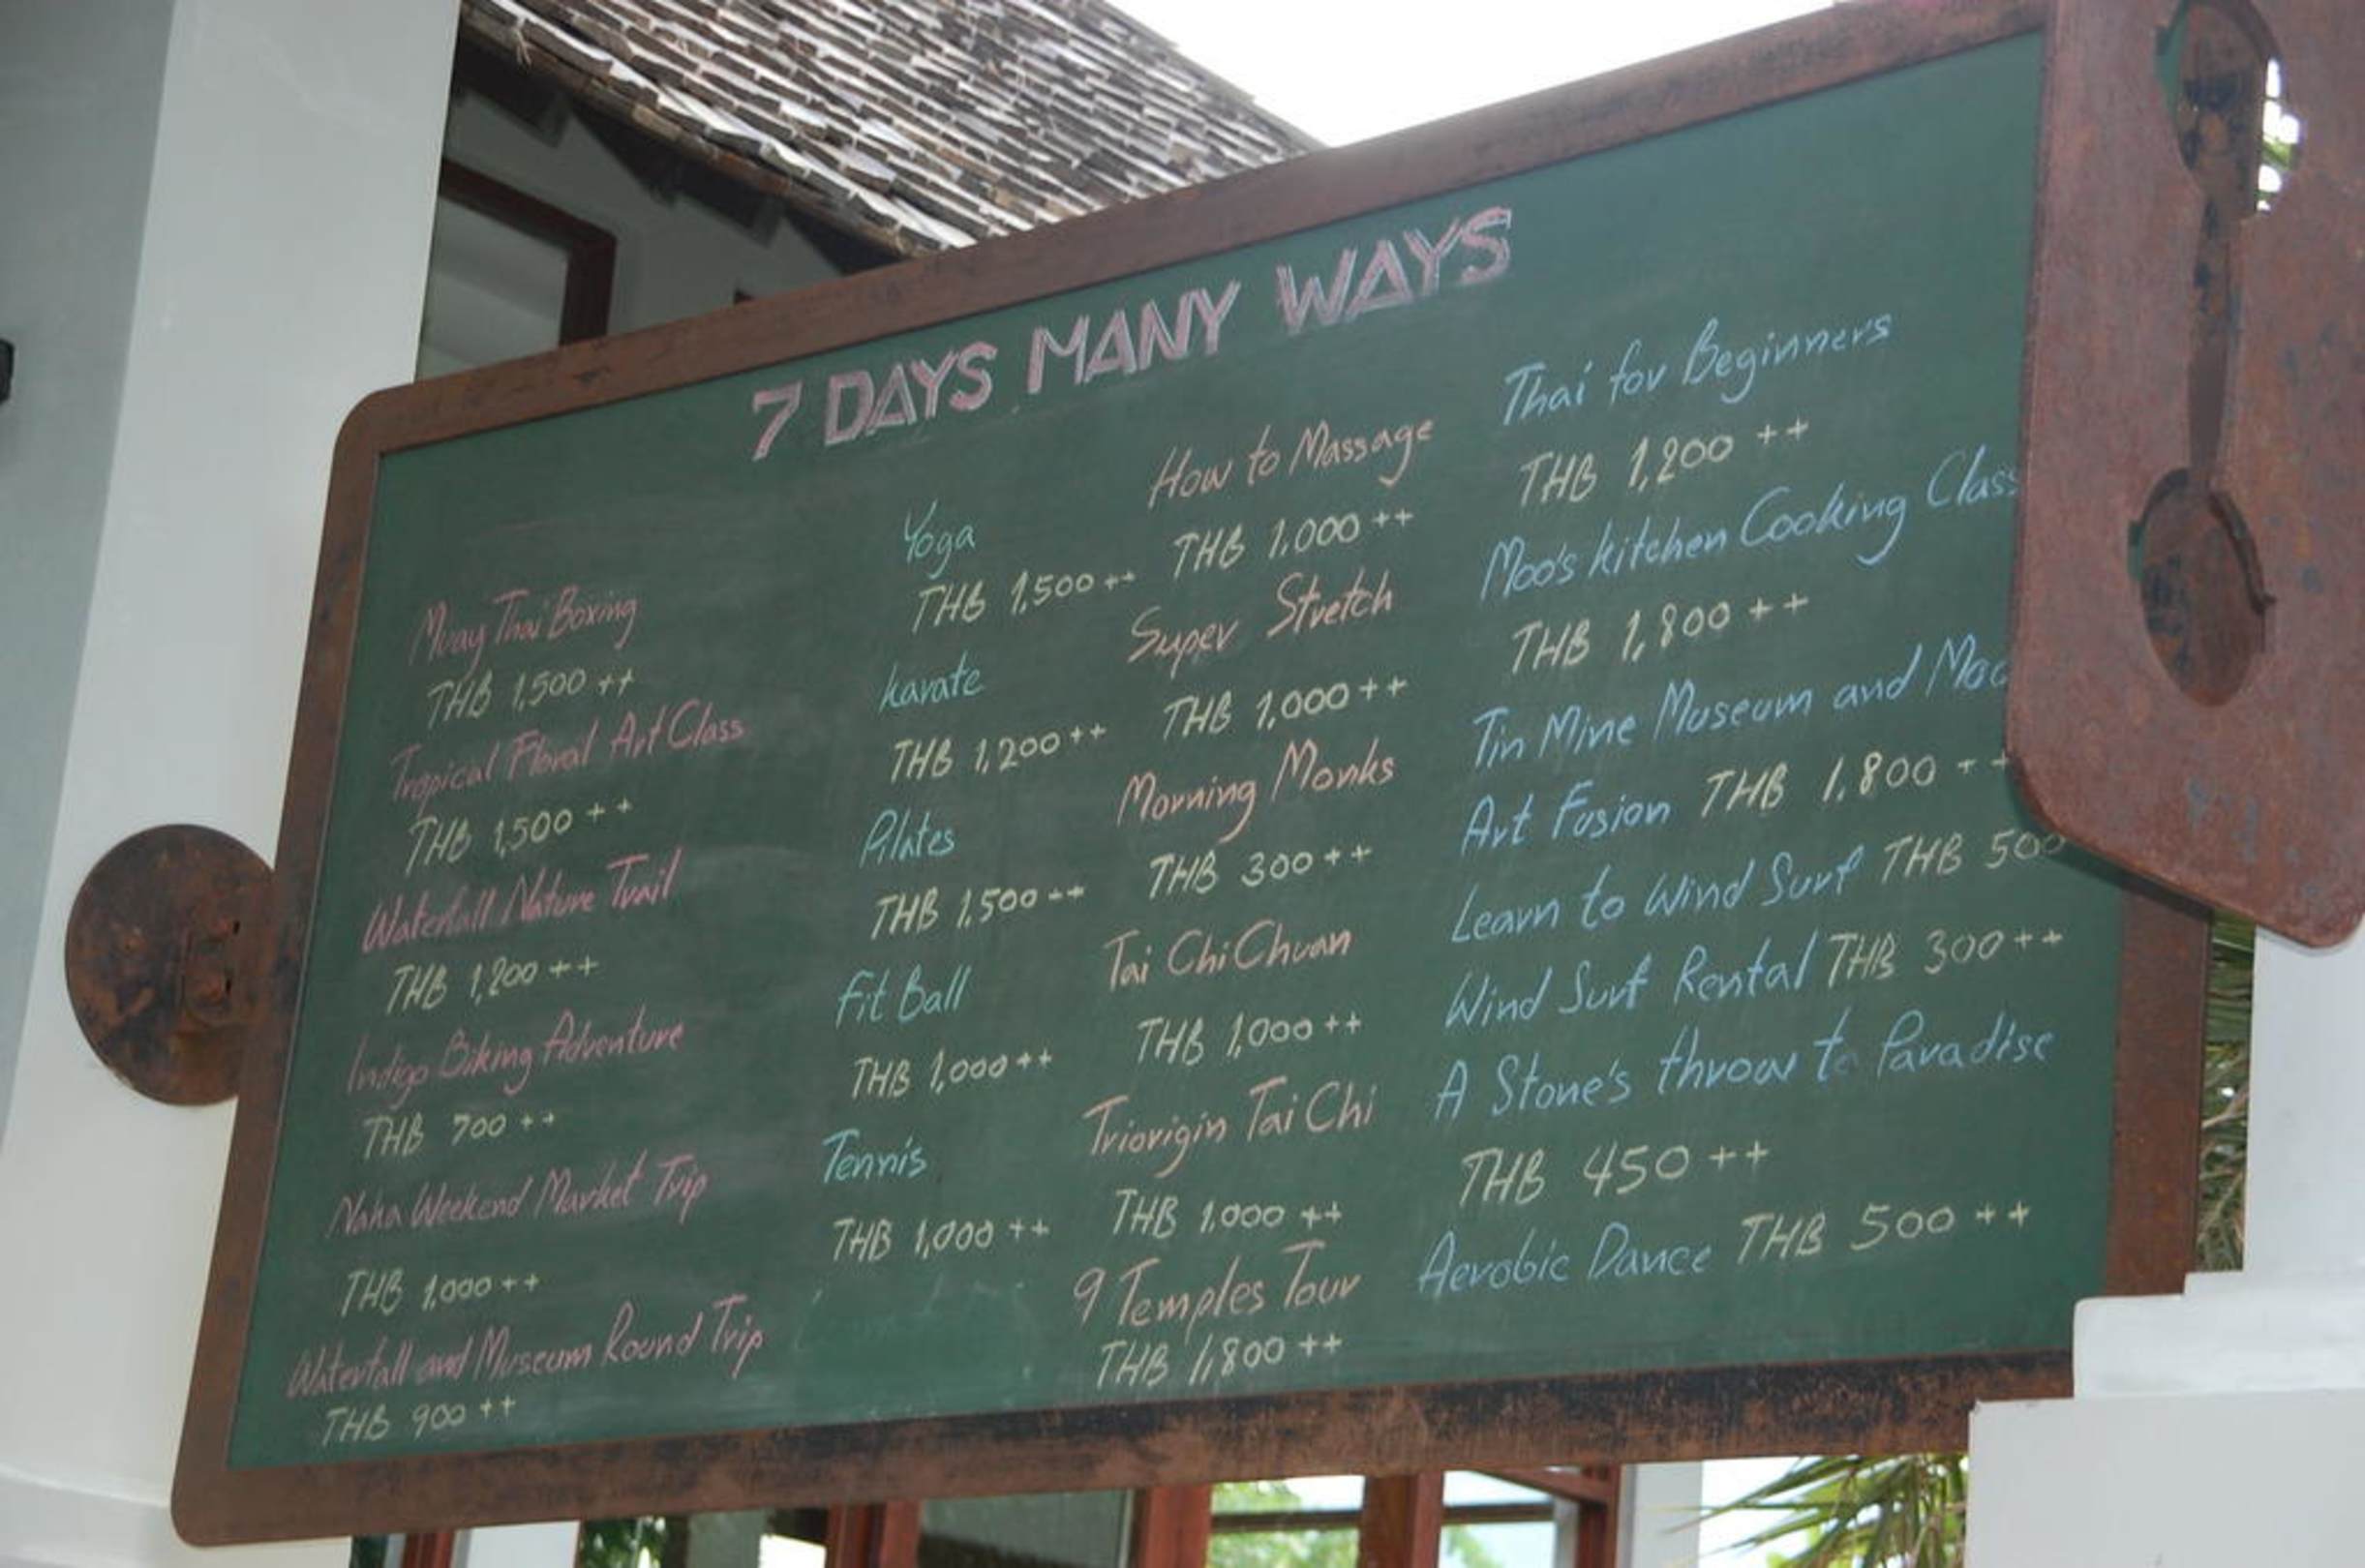 7 DAYS MANY WAYS
Muay Thai Boxing
THB 1,500 ++
Tropical Floral Art Class
THB 1,500 ++
Waterfall Nature Trail
THB 1,200 ++
Indigo Biking Adventure
THB 700 ++
Naka Weekend Market Trip
THB 1,000 ++
Waterfall and Museum Round Trip
THB 900 ++
Yoga
THB 1,500 ++
karate
THB 1,200 ++
Pilates
THB 1,500 ++
Fit Ball
THB 1,000 ++
Tennis
THB 1,000 ++
How to Massage
THB 1,000 ++
Super Stretch
THB 1,000 ++
Morning Monks
THB 300 ++
Tai Chi Chuan
THB 1,000 ++
Triorigin Tai Chi
THB 1,000 ++
9 Temples Tour
THB 1,800 ++
Thai for Beginners
THB 1,200 ++
Moo's kitchen Cooking Class
THB 1,800 ++
Tin Mine Museum and
Art Fusion THB 1,800 ++
Learn to Wind Surf THB 500
Wind Surf Rental THB 300 ++
A Stone's throw to Paradise
THB 450 ++
Aerobic Dance THB 500 ++